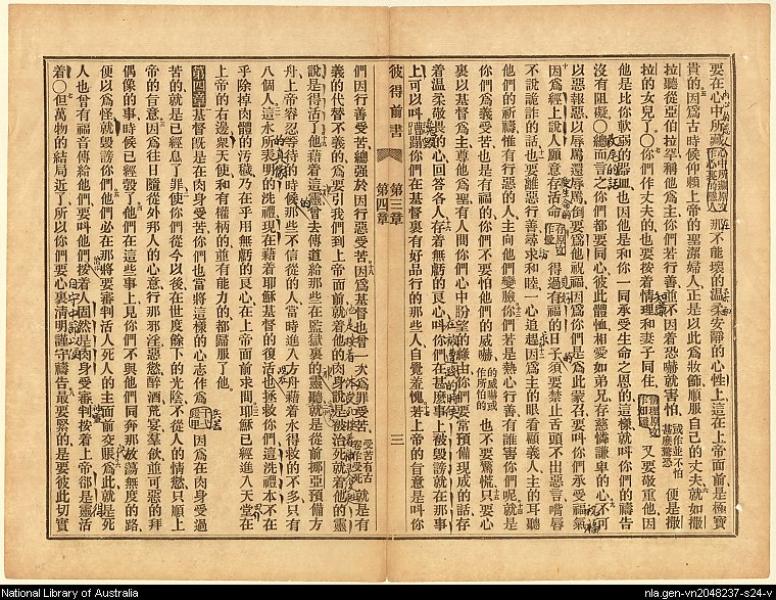 要在心中所藏 那不能壞的溫柔安靜的心性上這在上帝面前是極寶
貴的因爲古時候仰賴上帝的聖潔婦人正是以此爲妝飾順服自己的丈夫就如撒
拉聽從亞伯拉罕稱他爲主你們若行善並不因着恐嚇就害怕 或作並不怕甚麼驚恐 便是撒
拉的女兒了○你們作丈夫的也要按着情理和妻子同住 情理原文作知識 又要敬重他因
他是比你軟弱的器皿也因他是和你一同承受生命之恩的這樣就叫你們的禱告
沒有阻礙○總而言之你們都要同心彼此體恤相愛如弟兄存慈憐謙卑的心不可
以惡報惡以辱罵還辱罵倒要爲他祝福因爲你們是爲此蒙召要叫你們承受福氣
因爲經上說人願意存活命 得過有福的日子須要禁止舌頭不出惡言嘴唇
不說詭詐的話也要離惡行善尋求和睦一心追趕因爲主的眼看顧義人主的耳聽
他們的祈禱惟有行惡的人主向他們變臉你們若是熱心行善有誰害你們呢就是
你們爲義受苦也是有福的你們不要怕他們的威嚇 的威嚇或作所怕的 也不要驚慌只要心
裏以基督爲主尊他爲聖有人問你們心中盼望的緣由你們要常預備現成的話存
着溫柔敬畏的心回答各人存着無虧的良心叫你們在甚麼事上被毀謗就在那事
上可以叫 你們在基督裏有好品行的那些人自覺羞愧若上帝的旨意是叫你
彼得前書 第三章 第四章 三
們因行善受苦總強於因行惡受苦因爲基督也曾一次爲罪受苦 受苦有古卷作受死 就是有
義的代替不義的爲要引我們到上帝面前就着他的肉身說是被治死就着他的靈
說是得活了他藉着這靈曾去傳道給那些在監獄裏的靈聽就是從前挪亞預備方
舟上帝容忍等待的時候那些不信從的人當時進入方舟藉着水得救的不多只有
八個人這水所表明的洗禮現在藉着耶穌基督的復活也拯救你們這洗禮本不在
乎除掉肉體的污穢乃在乎用無虧的良心在上帝面前求問耶穌已經進入天堂在
上帝的右邊衆天使和有權柄的並有能力的都歸服了他
第四章基督既是在肉身受苦你們也當將這樣的心志作爲 因爲在肉身受過
苦的就是已經息了罪使你們從今以後在世度餘下的光陰不從人的情慾只順上
帝的旨意因爲往日隨從外邦人的心意行那邪淫惡慾醉酒荒宴羣飲並可惡的拜
偶像的事時候已經彀了他們在這些事上見你們不與他們同奔那放蕩無度的路
便以爲怪就毀謗你們他們必在那將要審判活人死人的主面前交賬爲此就是死
人也曾有福音傳給他們要叫他們按着人固然是肉身受審判按着上帝卻是靈活
着○但萬物的結局近了所以你們要心裏清明謹守禱告最要緊的是要彼此切實
National Library of Australia
nla.gen-vn2048237-s24-v